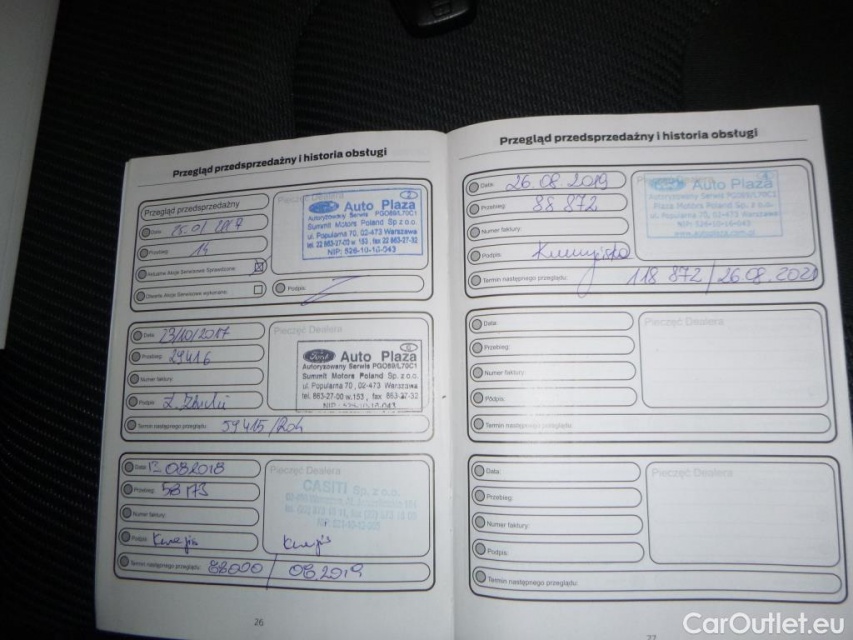 Przegląd przedsprzedażny i historia obsługi
Przegląd przedsprzedażny
Data:
Przebieg: 14
Aktualne Akcje Serwisowe Sprawdzone:
Otwarte Akcje Serwisowe wykonane:
Pieczęć Dealera
Ford
Auto Plaza
Autoryzowany Serwis PGO69/L70C1
Summit Motors Poland Sp z o.o.
ul. Popularna 70, 02-473 Warszawa
tel. 22 863-27-00 w.153; fax 22 863-27-32
NIP: 526-10-16-043
Podpis:
Data: 23/10/2017
Przebieg: 29416
Numer faktury:
Podpis:
Termin następnego przeglądu: 59415/Rok
Pieczęć Dealera
Ford
Auto Plaza
Autoryzowany Serwis PGO69/L70C1
Summit Motors Poland Sp. z o.o.
ul. Popularna 70, 02-473 Warszawa
tel. 863-27-00 w.153, fax 863-27-32
NIP: 526-10-16-043
Data: 082018
Przebieg: 58173
Numer faktury:
Podpis:
Termin następnego przeglądu: 88000 / 082019
Pieczęć Dealera
CASITI Sp. z o.o.
26
Przegląd przedsprzedażny i historia obsługi
Data: 26.08.2019
Przebieg: 88 872
Numer faktury:
Podpis:
Termin następnego przeglądu: 118 872/26.08.2020
Auto Plaza
Autoryzowany Serwis PGO69/L70C2
Plaza Motors Poland Sp. z o.o.
ul. Popularna 70, 02-473 Warszawa
NIP: 526-10-16-043
www.autoplaza.com.pl
Data:
Przebieg:
Numer faktury:
Podpis:
Termin następnego przeglądu:
Pieczęć Dealera
Data:
Przebieg:
Numer faktury:
Podpis:
Termin następnego przeglądu:
Pieczęć Dealera
27
CarOutlet.eu